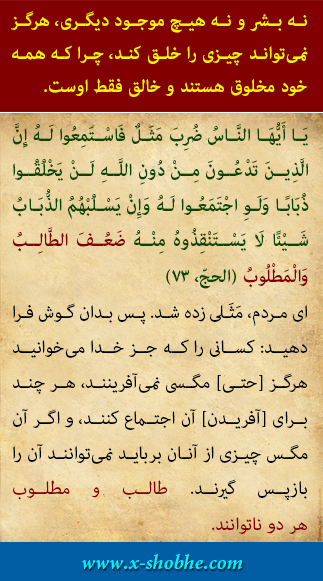 نه بشر و نه هیچ موجود دیگری، هرگز
نمی‌تواند چیزی را خلق کند، چرا که همه
خود مخلوق هستند و خالق فقط اوست.
یَا أَیُّهَا النَّاسُ ضُرِبَ مَثَلٌ فَاسْتَمِعُوا لَهُ إِنَّ
الَّذِینَ تَدْعُونَ مِنْ دُونِ اللَّهِ لَنْ یَخْلُقُوا
ذُبَابًا وَلَوِ اجْتَمَعُوا لَهُ وَإِنْ یَسْلُبْهُمُ الذُّبَابُ
شَیْئًا لَا یَسْتَنْقِذُوهُ مِنْهُ ضَعُفَ الطَّالِبُ
وَالْمَطْلُوبُ (الحجّ، ۷۳)
ای مردم، مَثَلی زده شد. پس بدان گوش فرا
دهید: کسانی را که جز خدا می‌خوانید
هرگز [حتی] مگسی نمی‌آفرینند، هر چند
برای [آفریدن] آن اجتماع کنند، و اگر آن
مگس چیزی از آنان برباید نمی‌توانند آن را
بازپس گیرند. طالب و مطلوب
هر دو ناتوانند.
www.x-shobhe.com